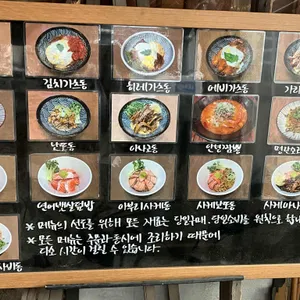 김치가츠동 히레가츠동 에비가츠동 가라
난또동 아나고동 탄탄짬뽕 명란
연어뱃살덮밥 이부리사케동 사케보또동 사케아나
※ 메뉴의 신선도를 위해 모든 재료는 당일구매, 당일소비를 원칙으로 합니
사비동 ※ 모든 메뉴는 주문과 동시에 조리하기 때문에
다소 시간이 걸릴 수 있습니다.